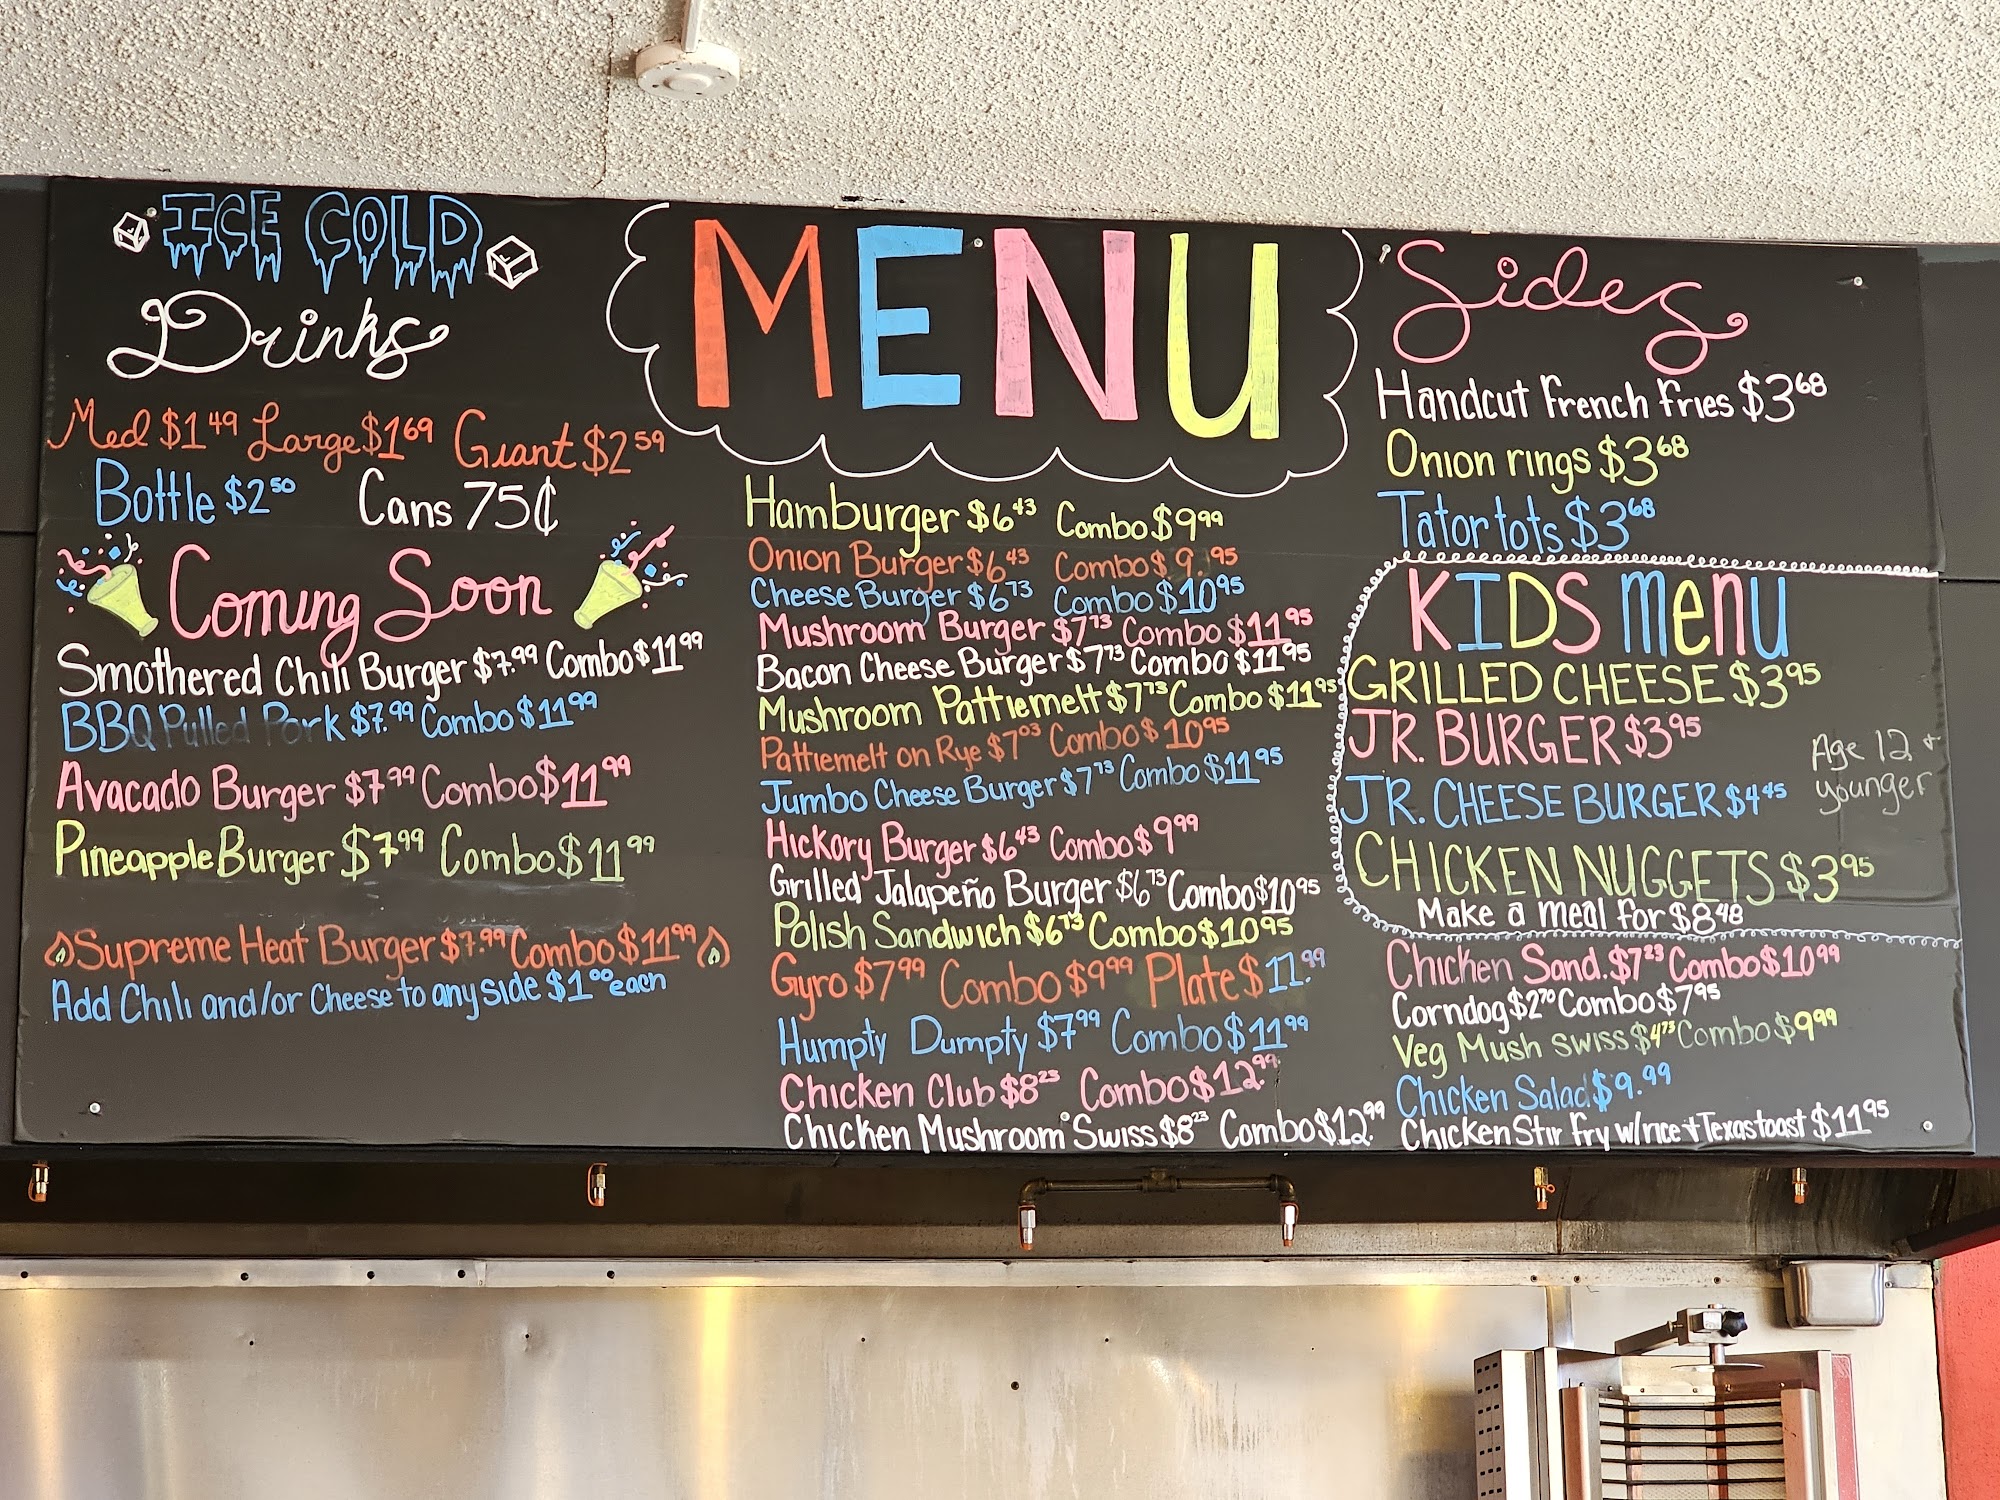 ICE COLD
Drinks
Med $1.49 Large $1.69 Giant $2.59
Bottle $2.50 Cans 75¢
Coming Soon
Smothered Chili Burger $7.99 Combo $11.99
BBQ Pulled Pork $7.99 Combo $11.99
Avacado Burger $7.99 Combo $11.99
Pineapple Burger $7.99 Combo $11.99
Supreme Heat Burger $7.99 Combo $11.99
Add Chili and/or Cheese to any side $1.00 each
MENU
Hamburger $6.43 Combo $9.99
Onion Burger $6.43 Combo $9.95
Cheese Burger $6.73 Combo $10.95
Mushroom Burger $7.73 Combo $11.95
Bacon Cheese Burger $7.73 Combo $11.95
Mushroom Pattiemelt $7.73 Combo $11.95
Pattiemelt on Rye $7.03 Combo $10.95
Jumbo Cheese Burger $7.73 Combo $11.95
Hickory Burger $6.43 Combo $9.99
Grilled Jalapeño Burger $6.73 Combo $10.95
Polish Sandwich $6.73 Combo $10.95
Gyro $7.99 Combo $9.99 Plate $11.99
Humpty Dumpty $7.99 Combo $11.99
Chicken Club $8.23 Combo $12.99
Chicken Mushroom Swiss $8.23 Combo $12.99
Sides
Handcut French Fries $3.68
Onion rings $3.68
Tator tots $3.68
KIDS Menu
GRILLED CHEESE $3.95
JR. BURGER $3.95
JR. CHEESE BURGER $4.45
CHICKEN NUGGETS $3.95
Make a meal for $8.48
Age 12 +
younger
Chicken Sand. $7.23 Combo $10.99
Corndog $2.70 Combo $7.95
Veg Mush Swiss $4.73 Combo $9.99
Chicken Salad $9.99
Chicken Stir Fry w/rice + Texas toast $11.95